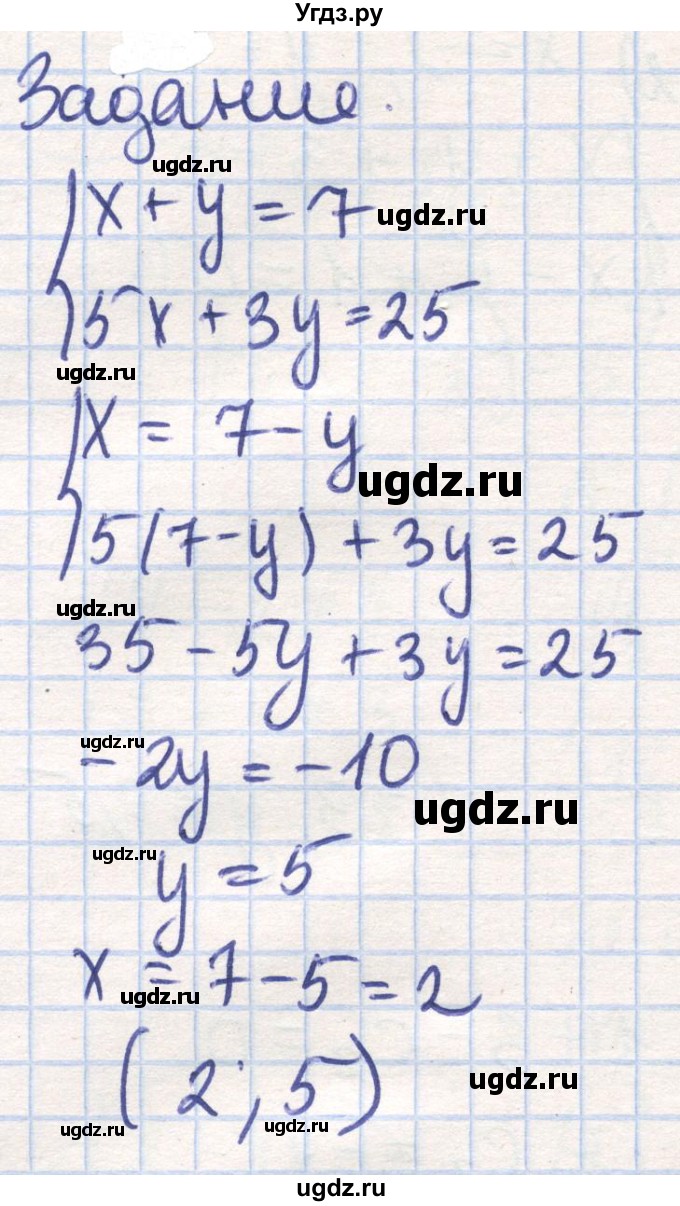 Угдз.ру
Задание.
ugdz.ru
x + y = 7 ugdz.ru
5x + 3y = 25
ugdz.ru
x = 7 - y
ugdz.ru
5(7-y) + 3y = 25
ugdz.ru
35 - 5y + 3y = 25
ugdz.ru
-2y = -10
ugdz.ru
ugdz.ru
y = 5
x = 7 - 5 = 2
ugdz.ru
(2; 5)
ugdz.ru
ugdz.ru ugdz.ru
ugdz.ru